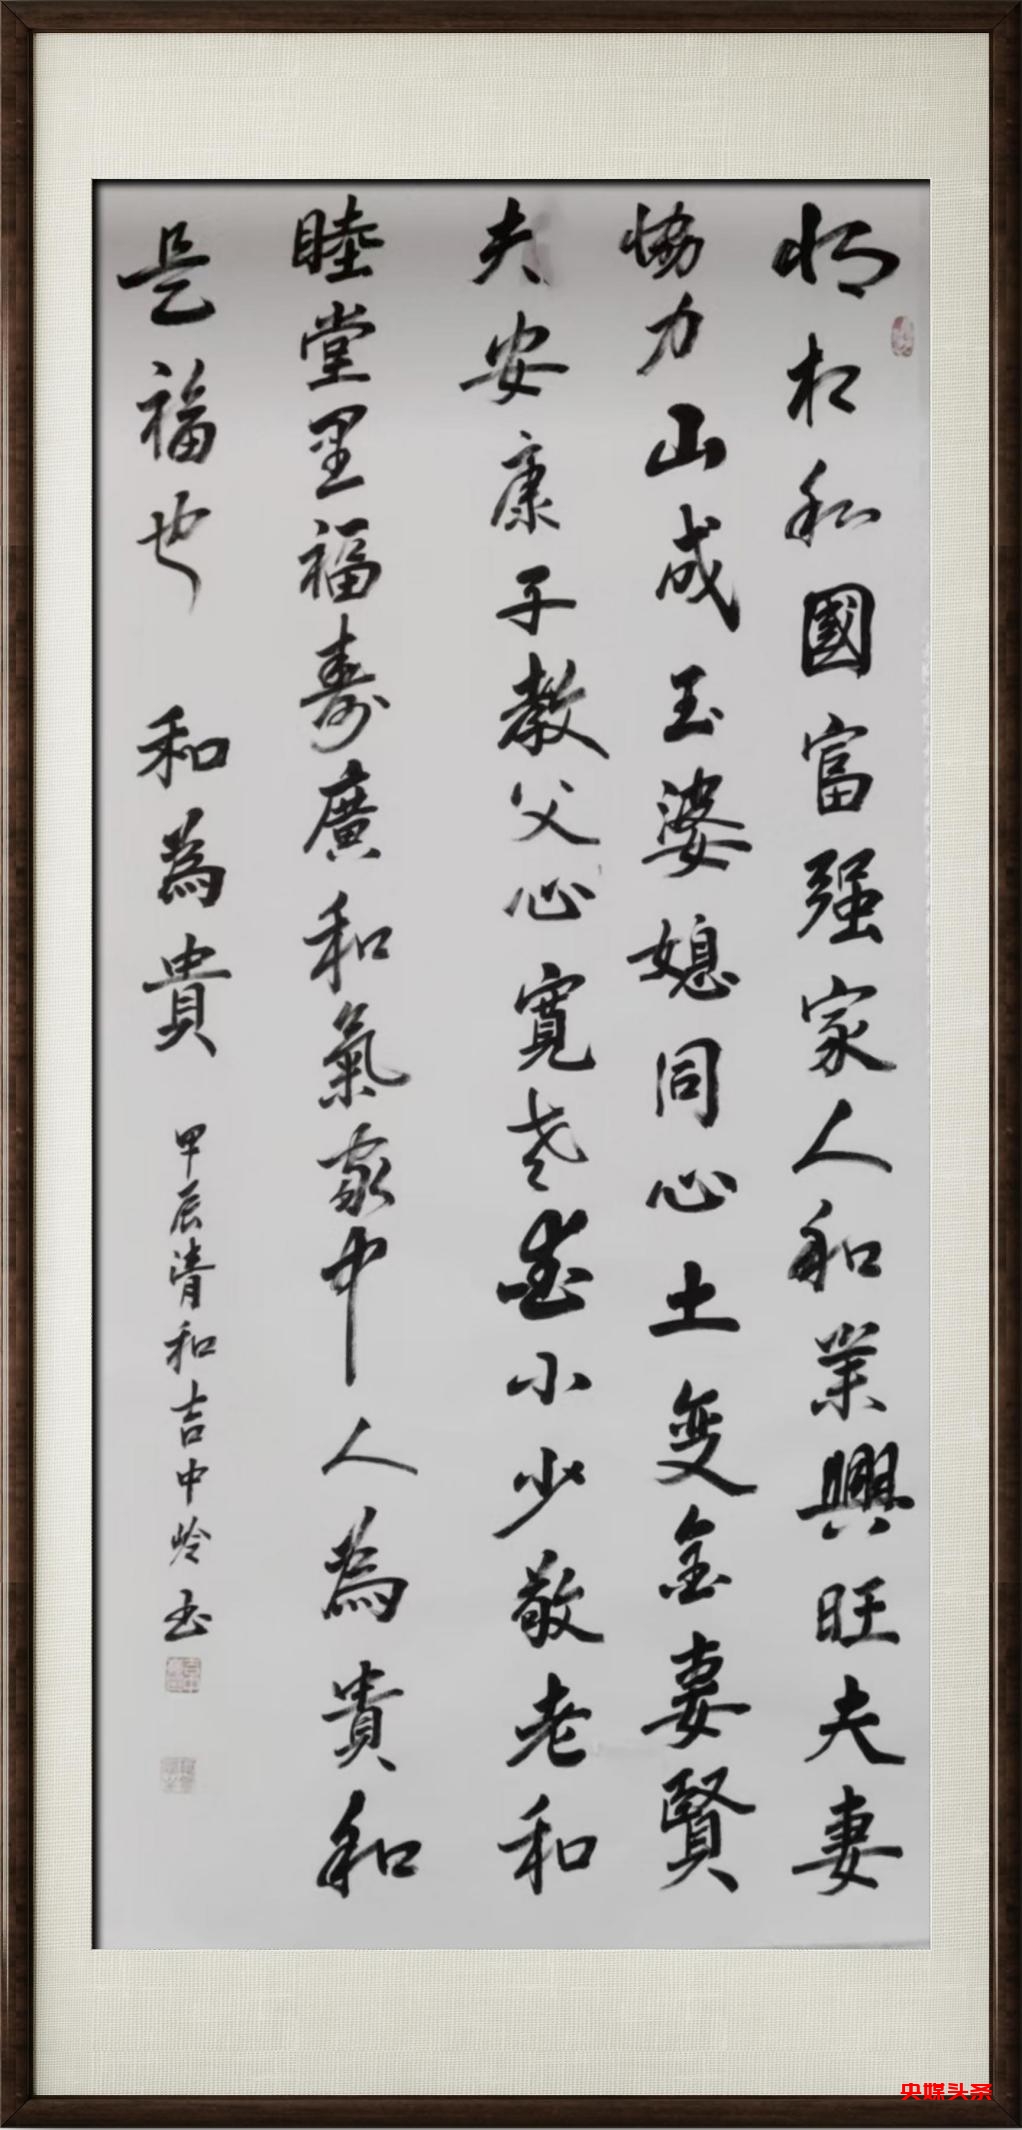 将相和國富强家人和業興旺夫妻
協力山成玉婆媳同心土变金妻賢
夫安康子教父心寬老愛小少敬老和
睦堂里福寿廣和氣家中人為貴和
是福也 和為貴 甲辰清和吉中岭书
央媒头条